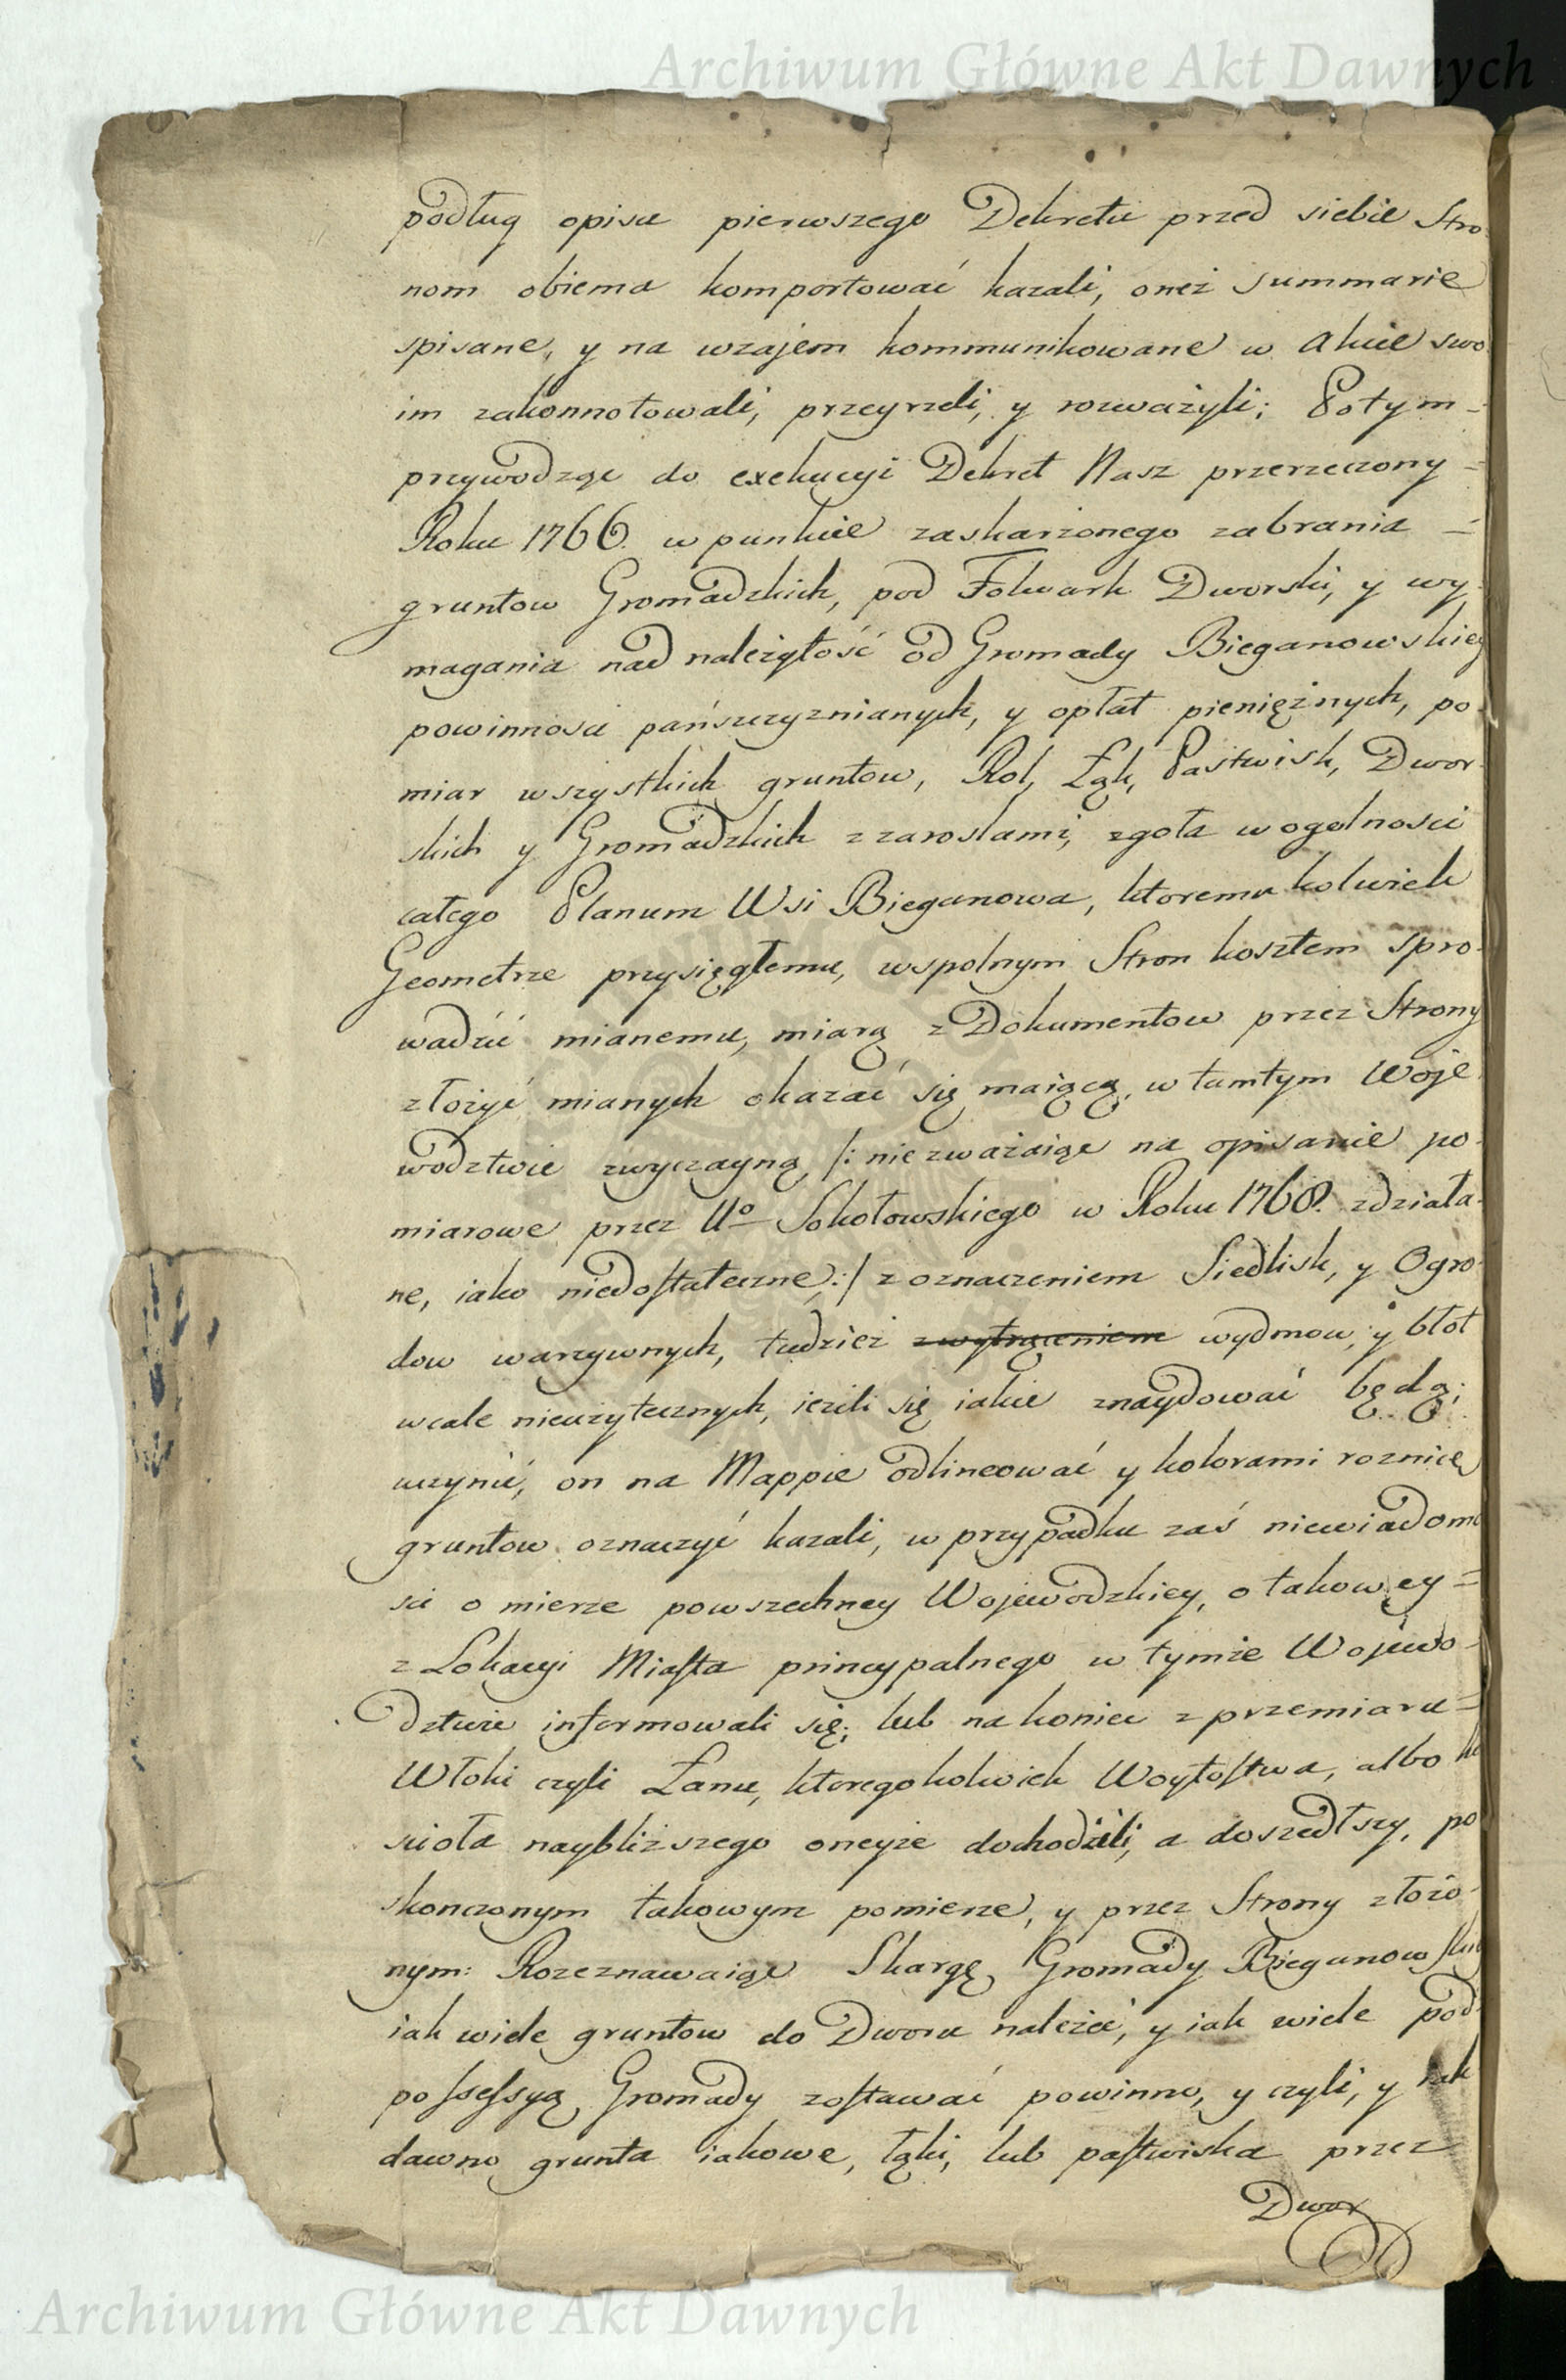 Archiwum Główne Akt Dawnych
podług opisu pierwszego Dekretu przed siebie Stro-
nom obiema komportować kazali, oneż summarie
spisane, y na wzajem kommunikowane w Akcie swo-
im zakonnotowali, przeyrzeli, y rozważyli; Potym-
przywodząc do exekucyi Dekret Nasz przerzeczony =
Roku 1766. w punkcie zaskarżonego zabrania =
gruntow Gromadzkich, pod Folwark Dworski, y wy-
magania nad należytość od Gromady Bieganowskiey
powinnosci pańszczyznianych, y opłat pieniężnych, po-
miar wszystkich gruntow, Rol, Łąk, Pastwisk, Dwor-
skich y Gromadzkich z zaroslami, zgoła w ogolnosci
całego Planum Wsi Bieganowa, ktoremu kolwiek
Geometrze przysięgłemu, wspolnym Stron kosztem spro-
wadzić mianemu, miarą z Dokumentow przez Strony
złożyć mianych okazać się maiącą, w tamtym Woje-
wodztwie zwyczayną /: nie zważaiąc na opisanie po-
miarowe przez Uo Sokołowskiego w Roku 1768. zdziała-
ne, iako niedostateczne :/ z oznaczeniem Siedlisk, y Ogro-
dow warzywnych, tudzież z wytrąceniem wydmow, y błot
wcale nieużytecznych, ieżeli się iakie znaydować będą;
uczynić, on na Mappie odlineować y kolorami roznicę
gruntow oznaczyć kazali, w przypadku zaś niewiadomo
sci o mierze powszechney Wojewodzkiey, o takowey =
z Lokacyi Miasta pryncypalnego w tymże Wojewo-
dztwie informowali się; lub na koniec z przemiaru =
Włoki czyli Łanu, ktoregokolwiek Woytostwa, albo Ko
scioła naybliższego oneyże dochodzili, a doszedłszy, po
skonczonym takowym pomierze, y przez Strony złożo-
nym: Rozeznawaiąc Skargę Gromady Bieganowskiey
iak wiele gruntow do Dworu należeć, y iak wiele pod
possessyą Gromady zostawać powinno, y czyli, y iak
dawno grunta iakowe, łąki, lub pastwiska przez
Dwor
Archiwum Główne Akt Dawnych